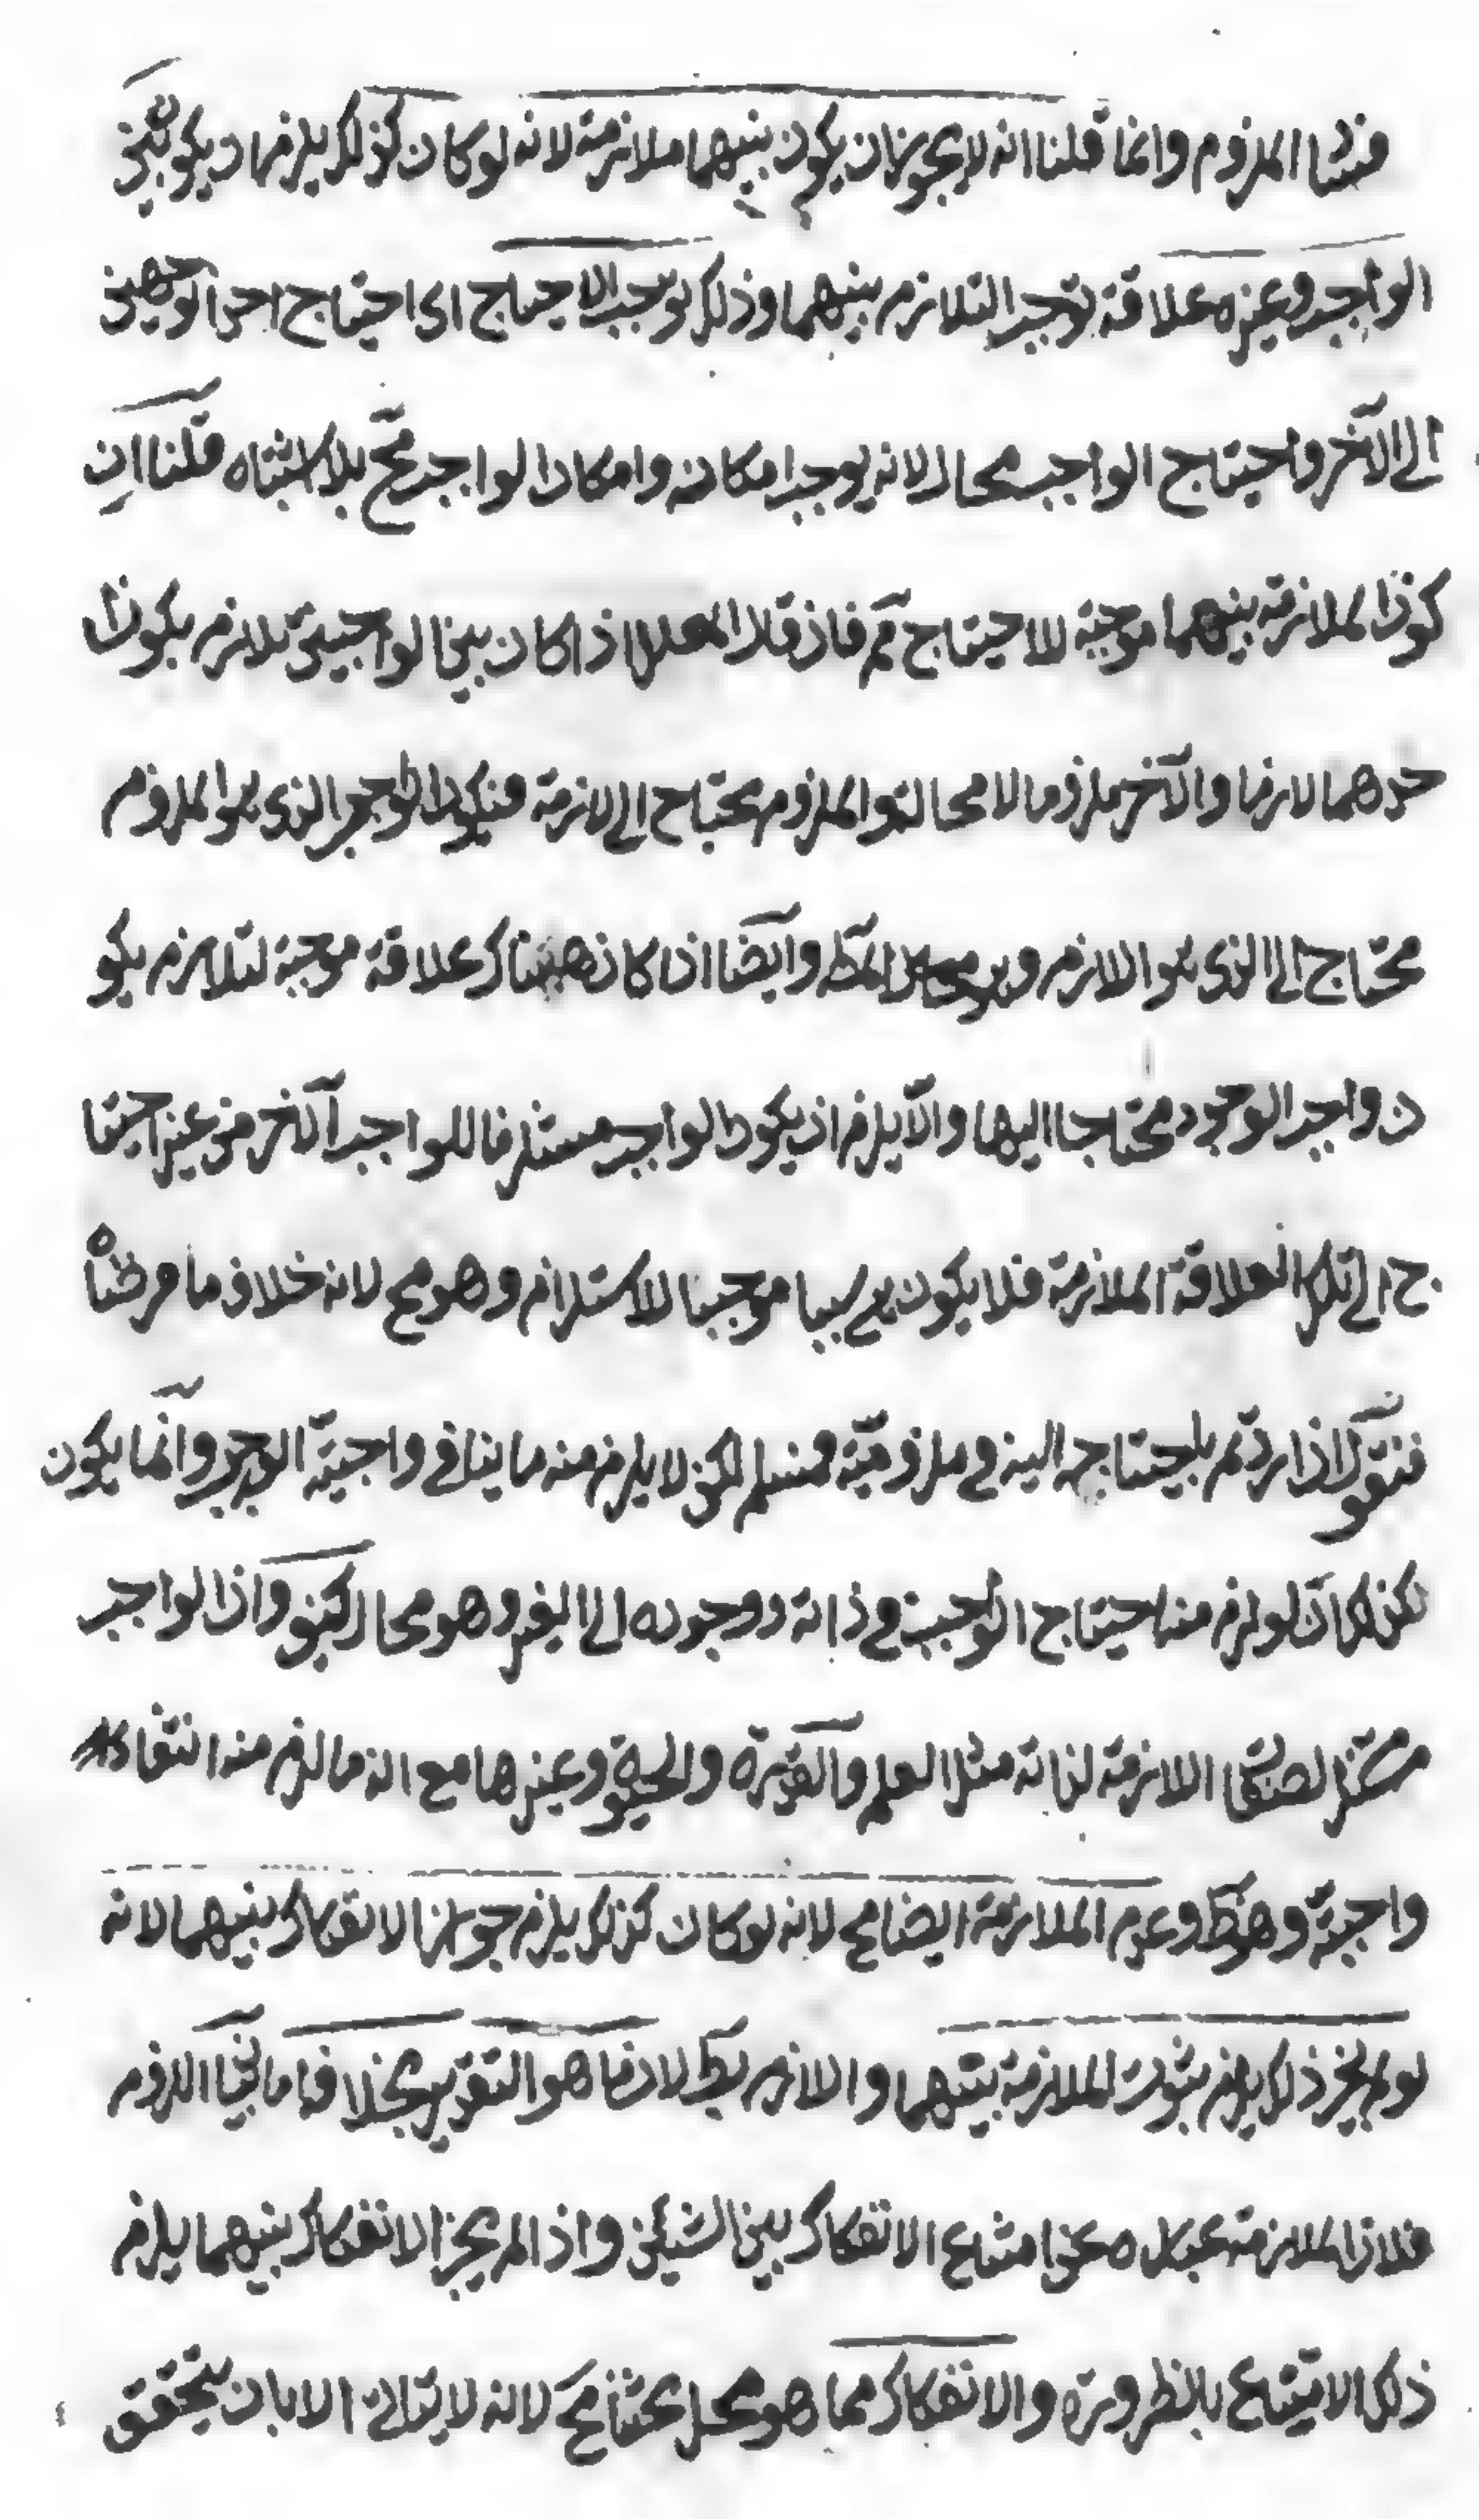 منشأ الملزوم وانما قلنا انه لا يجوز ان يكون بينهما ملازمة لانه لو كان كذلك يلزم ان يكون بين
الواجب وغيره علاقة توجب التلازم بينهما وذلك يوجب الاحتياج اى احتياج احد الوجهين
الى الآخر واحتياج الواجب محال لانه يوجب امكانه وامكان الواجب مح بلا اشتباه قلنا ان
كون الملازمة بينهما موجبة للاحتياج مم فان قلا المعلل اذا كان بين الواجبين تلازم يكون ا
حدهما لازما والآخر ملزوما لا محالة والملزوم يحتاج الى لازمة فيكون الواجب الذى هو الملزوم
محتاج الى الذى هو اللازم وهو محال المط وايضا اذا كان هناك علاقة موجبة لتلازم يكو
ن واجب الوجود محتاجا اليها والا يلزم ان يكون الواجب مستلزما للواجب الآخر من غير احتيا
ج الى تلك العلاقة الملازمة فلا يكون هى سببا موجبا للاستلزام وهو مح لانه خلاف ما فرضناه
فنقول اذا اردتم باحتياجه اليه فى ملزوميته فمسلم لكن لا يلزم منه ما ينافى واجبية الوجود وانما يكون
كذلك ان لو لزم منه احتياج الواجب فى ذاته ووجوده الى الغير وهو محال كيف واذا الواجب
مستلزم لصفته اللازمة لذاته مثل العلم والقدرة والحيوة وغيرها مع انه ما لزم منه انتفاء
واجبية وهو ظ وعدم الملازمة ايضا مح لانه لو كان كذلك يلزم جواز الانفكاك بينهما لانه
لو لم يجز ذلك يلزم ثبوت الملازمة بينهما واللازم بط لان ما هو التقدير بخلافا ما بين اللزوم
فلان الملازمة عبارة عن امتناع الانفكاك بين الشيئين واذا لم يجز الانفكاك بينهما يلزم
ذلك الامتناع بالضرورة والانفكاك مما هو محل بحثنا مح لانه لا يتاتى الا بان يتحقق